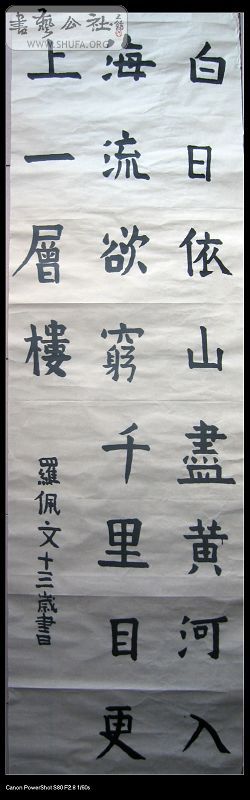 白日依山盡黄河入
海流欲窮千里目更
上一層樓
羅佩文十三歲書
書藝公社
WWW.SHUFA.ORG
Canon PowerShot S80 F2.8 1/60s